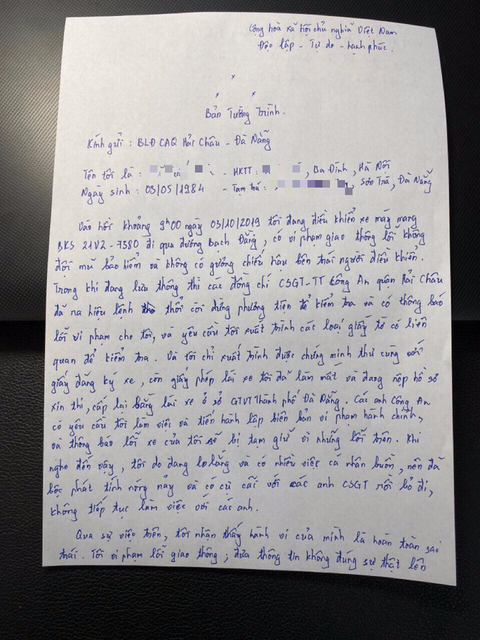 Cộng hoà xã hội chủ nghĩa Việt Nam
Độc lập - Tự do - hạnh phúc.
Bản Tường Trình.
Kính gửi: BLĐ CAQ Hải Châu - Đà Nẵng
Tên tôi là: - HKTT: Ba Đình, Hà Nội
Ngày sinh: 03/05/1984 - Tạm trú: Sơn Trà, Đà Nẵng
Vào hồi khoảng 9h00 ngày 03/10/2019 tôi đang điều khiển xe máy mang
BKS 21V2 - 7380 đi qua đường Bạch Đằng, có vi phạm giao thông lỗi không
đội mũ bảo hiểm và không có gương chiếu hậu bên trái người điều khiển.
Trong khi đang lưu thông thì các đồng chí CSGT-TT Công An quận Hải Châu
đã ra hiệu lệnh thổi còi dừng phương tiện để kiểm tra và có thông báo
lỗi vi phạm cho tôi, và yêu cầu tôi xuất trình các loại giấy tờ có liên
quan để kiểm tra. Và tôi chỉ xuất trình được chứng minh thư cùng với
giấy đăng ký xe, còn giấy phép lái xe tôi đã làm mất và đang nộp hồ sơ
xin thi, cấp lại bằng lái xe ở sở GTVT Thành phố Đà Nẵng. Các anh Công An
có yêu cầu tôi làm việc và tiến hành lập biên bản vi phạm hành chính,
và thông báo lỗi xe của tôi sẽ bị tạm giữ vì những lỗi trên. Khi
nghe đến vậy, tôi do đang lo lắng và có nhiều việc cá nhân buồn, nên đã
bộc phát tính nóng nảy và có cự cãi với các anh CSGT rồi bỏ đi,
không tiếp tục làm việc với các anh.
Qua sự việc trên, tôi nhận thấy hành vi của mình là hoàn toàn sai
trái. Tôi vi phạm lỗi giao thông, đưa thông tin không đúng sự thật lên